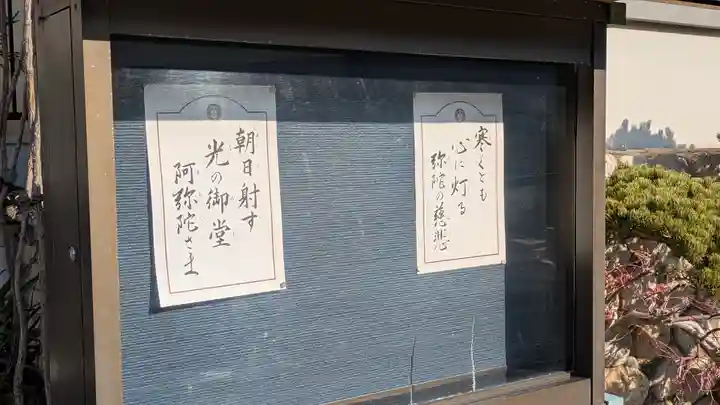 寒くとも
心に灯る
弥陀の慈悲
朝日射す
光の御堂
阿弥陀さま